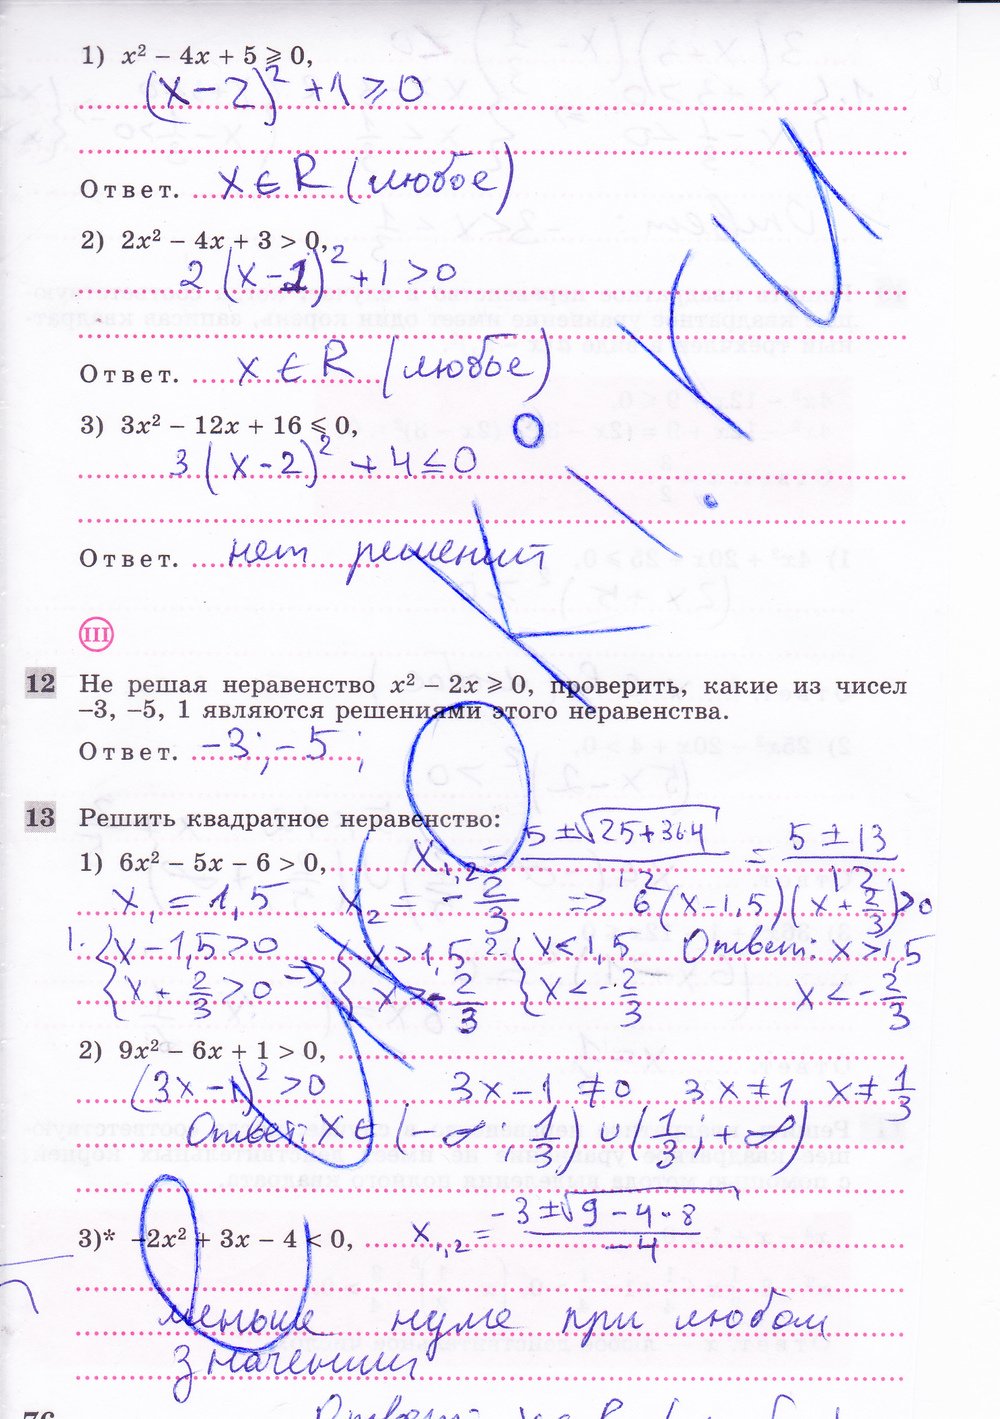 1) x² – 4x + 5 ⩾ 0,
(x – 2)² + 1 ≥ 0
Ответ. x ∈ R (любое)
2) 2x² – 4x + 3 > 0,
2 (x – 1)² + 1 > 0
Ответ. x ∈ R (любое)
3) 3x² – 12x + 16 ⩽ 0,
3 (x – 2)² + 4 ≤ 0
Ответ. нет решений
III
12 Не решая неравенство x² – 2x ⩾ 0, проверить, какие из чисел
–3, –5, 1 являются решениями этого неравенства.
Ответ. –3; –5;
13 Решить квадратное неравенство:
1) 6x² – 5x – 6 > 0, x₁,₂ = (5 ± √25+36·4)/12 = (5 ± 13)/12
x₁ = 1,5 x₂ = – 2/3 => 6 (x – 1,5)(x + 2/3) > 0
1. { x – 1,5 > 0 => { x > 1,5 2. { x < 1,5 Ответ: x > 1,5
{ x + 2/3 > 0 { x > – 2/3 { x < – 2/3 x < – 2/3
2) 9x² – 6x + 1 > 0,
(3x – 1)² > 0 3x – 1 ≠ 0 3x ≠ 1 x ≠ 1/3
Ответ: x ∈ (–∞; 1/3) ∪ (1/3; +∞)
3)* –2x² + 3x – 4 < 0, x₁,₂ = (–3 ± √9 – 4·8)/–4
меньше нуля при любом
значении
76